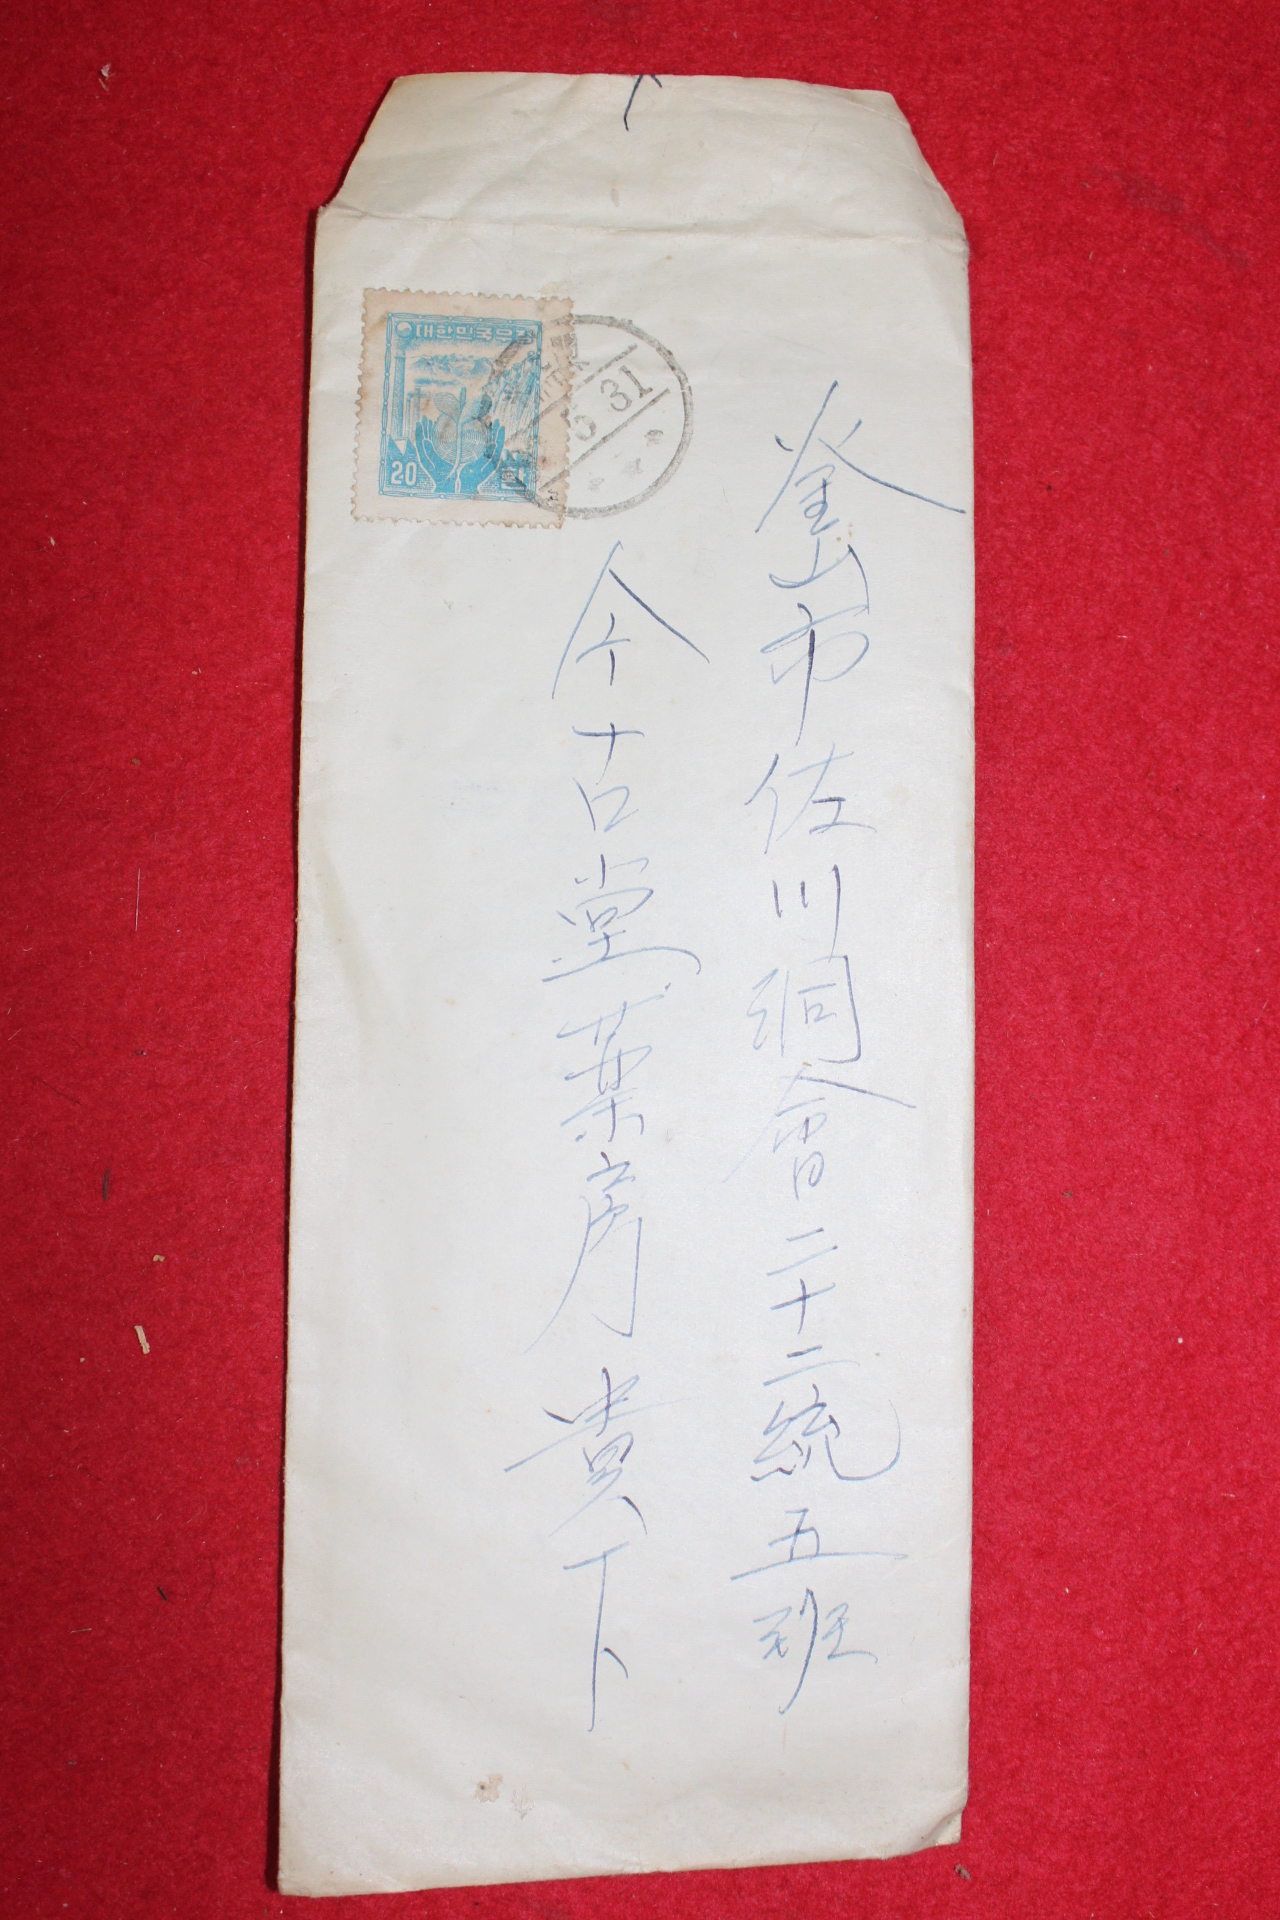 대한민국우표
20
환
5 31
釜山市佐川洞會二十二統五班
今古堂薬房 貴下